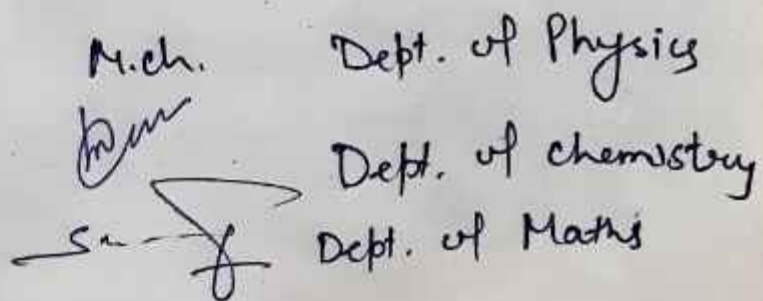 M.ch. Dept. of Physics
Dept. of chemistry
Dept. of Maths